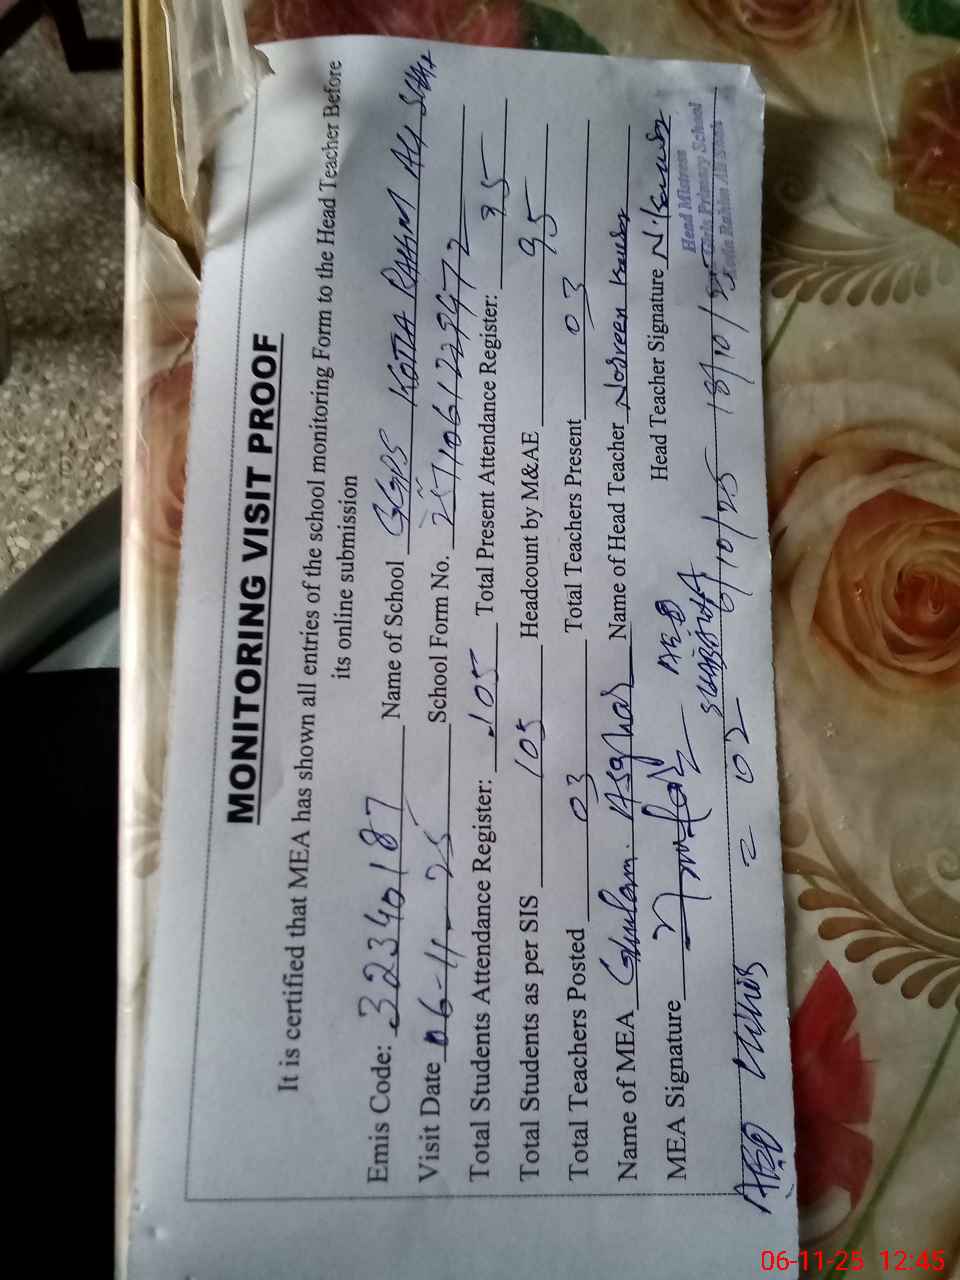 MONITORING VISIT PROOF
It is certified that MEA has shown all entries of the school monitoring Form to the Head Teacher Before
its online submission
Emis Code: 32340187 Name of School GGPS KOTLA RAHIM ALI SHAH
Visit Date 06-11-25 School Form No.
Total Students Attendance Register: 105 Total Present Attendance Register: 95
Total Students as per SIS 105 Headcount by M&AE 95
Total Teachers Posted 03 Total Teachers Present 03
Name of MEA Ghulam Asghar Name of Head Teacher Nosreen Kausar
MEA Signature AEO Head Teacher Signature N.Kausar
Head Mistress
Girls Primary School
Kotla Rahim Ali Shah
AEO Visits = 02 6/10/25 18/10/25
06-11-25 12:45